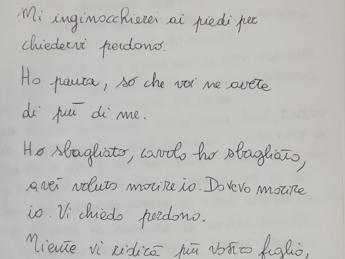 Mi inginocchierei ai piedi per
chiedervi perdono.
Ho paura, so che voi ne avete
di più di me.
Ho sbagliato, cavolo ho sbagliato,
avrei voluto morire io. Dovevo morire
io. Vi chiedo perdono.
Niente vi ridirà più vostro figlio,